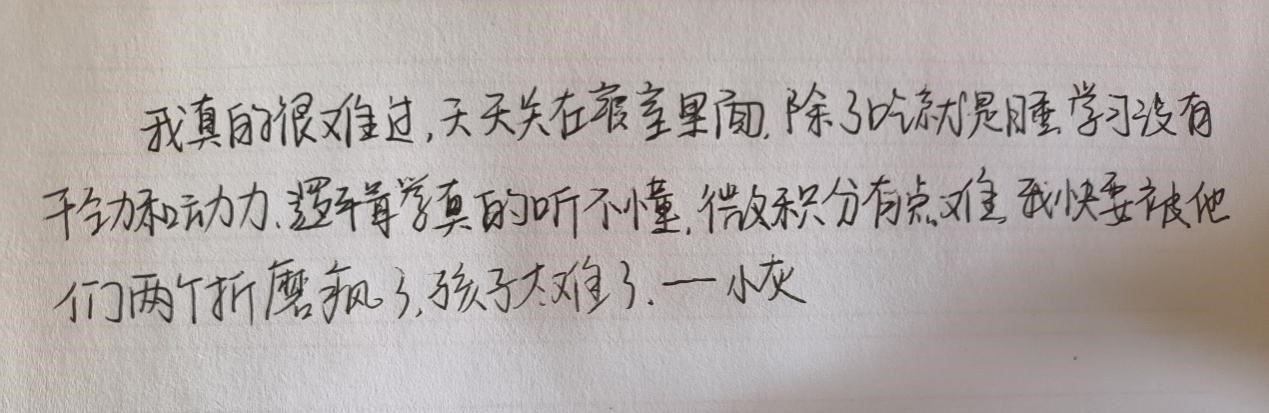 我真的很难过,天天关在寝室里面,除了吃就是睡,学习没有
干劲和动力,逻辑导学真的听不懂,微积分有点难,我快要被他
们两个折磨疯了,孩子太难了.一小灰